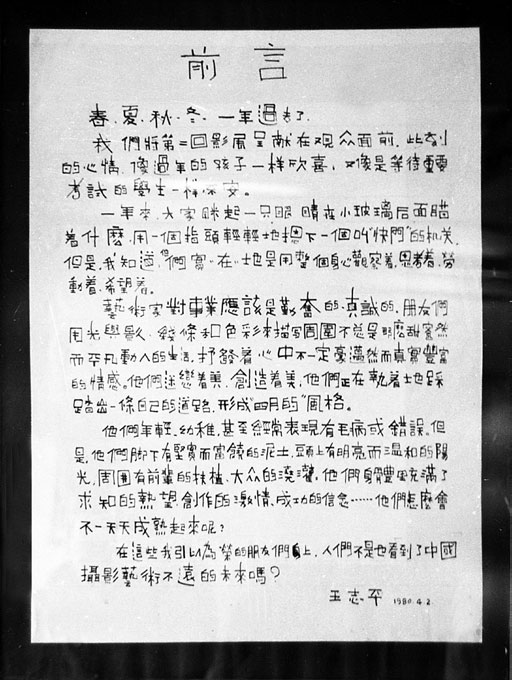 前言
春、夏、秋、冬、一年過去了.
我們將第二回影展呈献在观众面前，此刻
的心情，像過年的孩子一样欣喜，又像是等待重要
考試的學生一样不安。
一年來，大家眯起一只眼睛在小玻璃后面瞄
着什麼，用一個指頭輕輕地摁下一個叫"快門"的机关，
但是，我知道，他們實在地是用整個身心觀察着，思考着，勞
動着，希望着。
藝術家對事業應該是勤奮的，真誠的，朋友們
用光與影、綫條和色彩來描写周圍不总是那麼甜蜜然
而平凡動人的生活，抒發着心中不一定豪邁然而真實豐富
的情感。他們迷戀着美，創造着美，他們正在執著地踩
踏出一條自己的道路，形成"四月的"風格。
他們年輕、幼稚，甚至經常表現有毛病或錯誤。但
是，他們脚下有堅實而富饒的泥土，頭上有明亮而温和的陽
光，周圍有前輩的扶植、大众的澆灌，他們身體里充滿了
求知的熱望、創作的激情、成功的信念……他們怎麼會
不一天天成熟起來呢？
在這些我引以為榮的朋友們身上，人們不是也看到了中國
攝影藝術不遠的未來嗎？
王志平 1980.4.2.